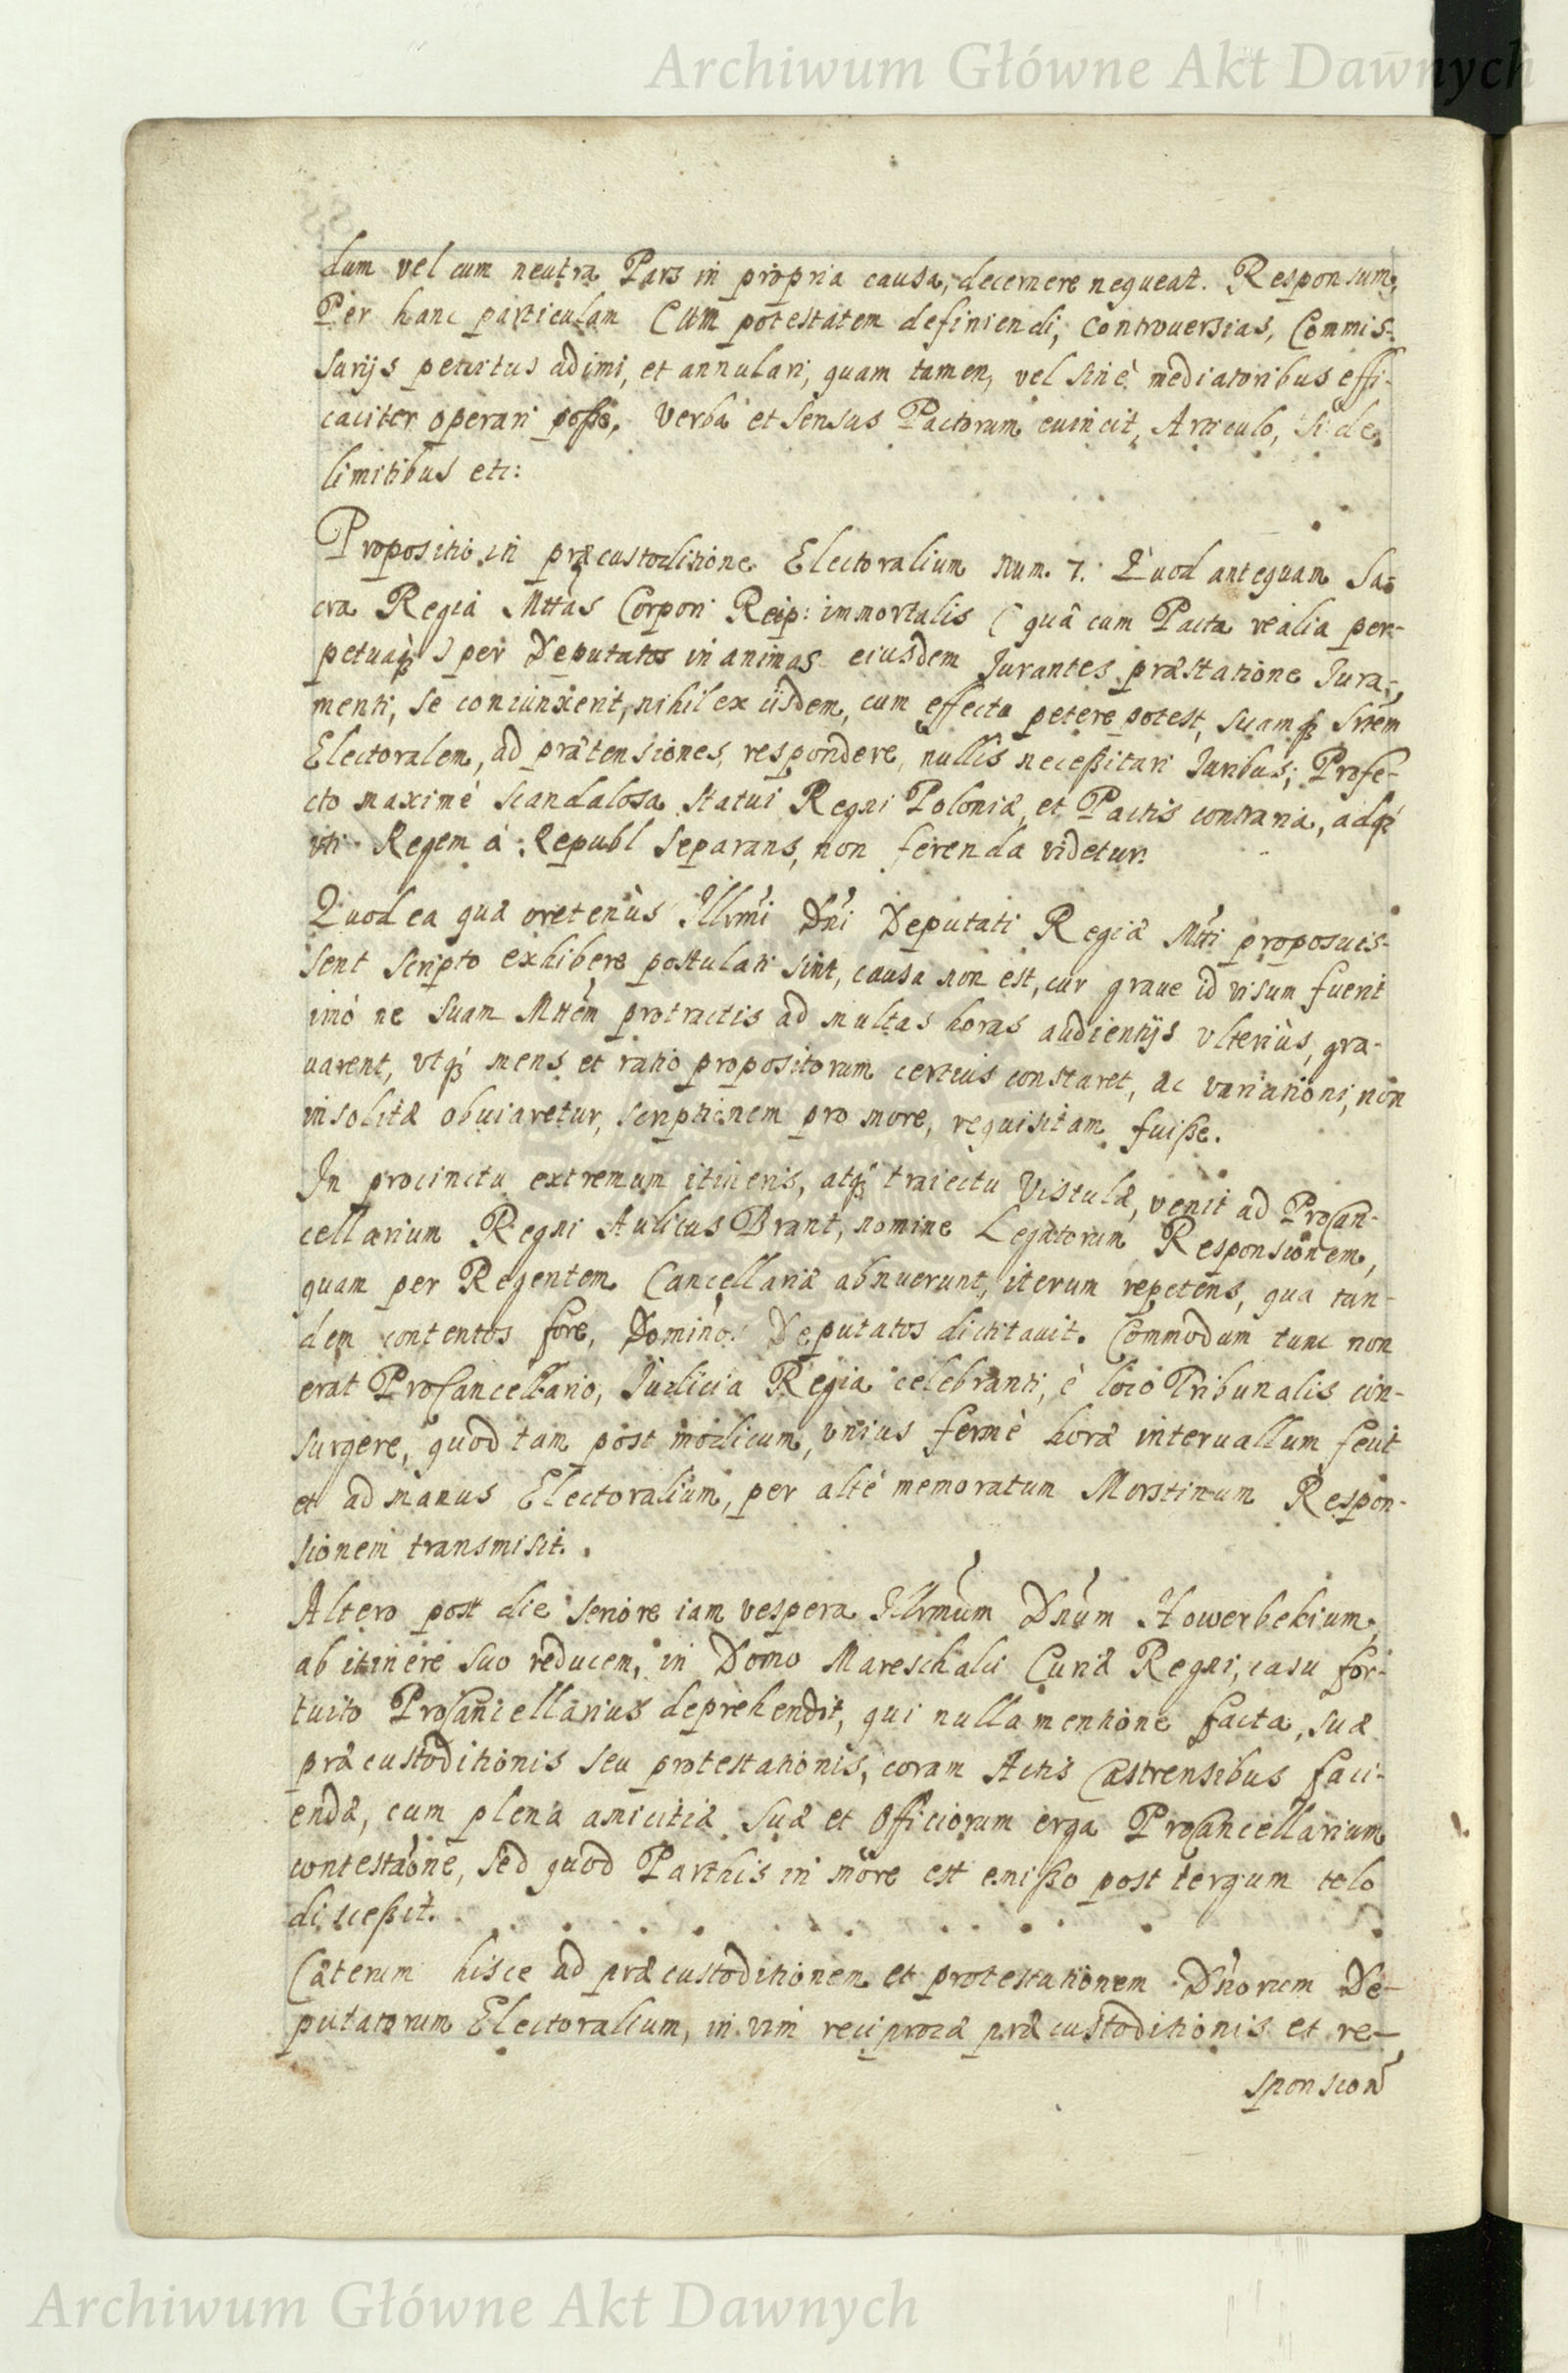 Archiwum Główne Akt Dawnych
dum vel cum neutra Pars in propria causa, decernere nequeat. Responsum,
Per hanc particulam Cum potestatem definiendi, controuersias, Commis-
sarijs penitus adimi, et annulari, quam tamen, vel sinè mediatoribus effi-
caciter operari posse, Verba et sensus Pactorum euincit, Articulo, Si de
limitibus etc:
Propositio in præcustoditione Electoralium Num. 7. Quod antequam Sa-
cra Regia Mttas Corpori Reip: immortalis (quâ cum Pacta realia per-
petuaq3) per Deputatos in animas eiusdem Jurantes præstatione Jura-
menti, se coniunxerit, nihil ex iisdem, cum effectu petere potest, suamq3 Srtem
Electoralem, ad prætensiones, respondere, nullis necessitari Juribus; Profe-
cto maximè scandalosa statui Regni Poloniæ, et Pactis contraria, adq3
vti Regem à Republ separans, non ferenda videtur.
Quod ea quæ oretenùs Illrmi Dni Deputati Regiæ Mtti proposuis-
sent scripto exhibere postulati sint, causa non est, cur graue id visum fuerit
imò ne suam Mttem protractis ad multas horas audientijs vlteriùs, gra-
uarent, vtq3 mens et ratio propositorum certius constaret, ac variationi, non
insolitæ obuiaretur, scriptionem pro more, requisitam fuisse.
In procinctu extremum itineris, atq3 traiectu Vistulæ, venit ad ProCan-
cellarium Regni Aulicus Brant, nomine Legatorum Responsionem,
quam per Regentem Cancellariæ abnuerunt, iterum repetens, qua tan-
dem contentos fore, Dominos Deputatos dictitauit. Commodum tunc non
erat ProCancellario, Judicia Regia celebranti, è loco Tribunalis con-
surgere, quod tam post modicum, vnius fermè horæ interuallum fecit
et ad manus Electoralium, per altè memoratum Morstinum Respon-
sionem transmisit.
Altero post die seriore iam vespera Illrmum Dnum Howerbekium,
ab itinere suo reducem, in Domo Mareschalci Curiæ Regni, casu for-
tuito ProCancellarius deprehendit, qui nulla mentione facta, suæ
præcustoditionis seu protestationis, coram Actis Castrensibus faci-
endæ, cum plena amicitiæ suæ et Officiorum erga ProCancellarium
contestaone, sed quod Parthis in more est emisso post tergum telo
discessit.
Cæterum hisce ad præcustoditionem et protestationem Dnorum De-
putatorum Electoralium, in vim reciprocæ præcustoditionis et re-
sponsion
Archiwum Główne Akt Dawnych